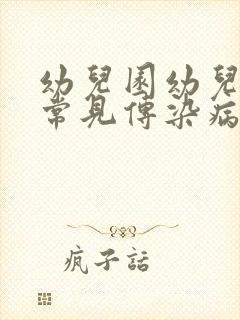 幼兒園幼兒
常見傳染病
瘋子話